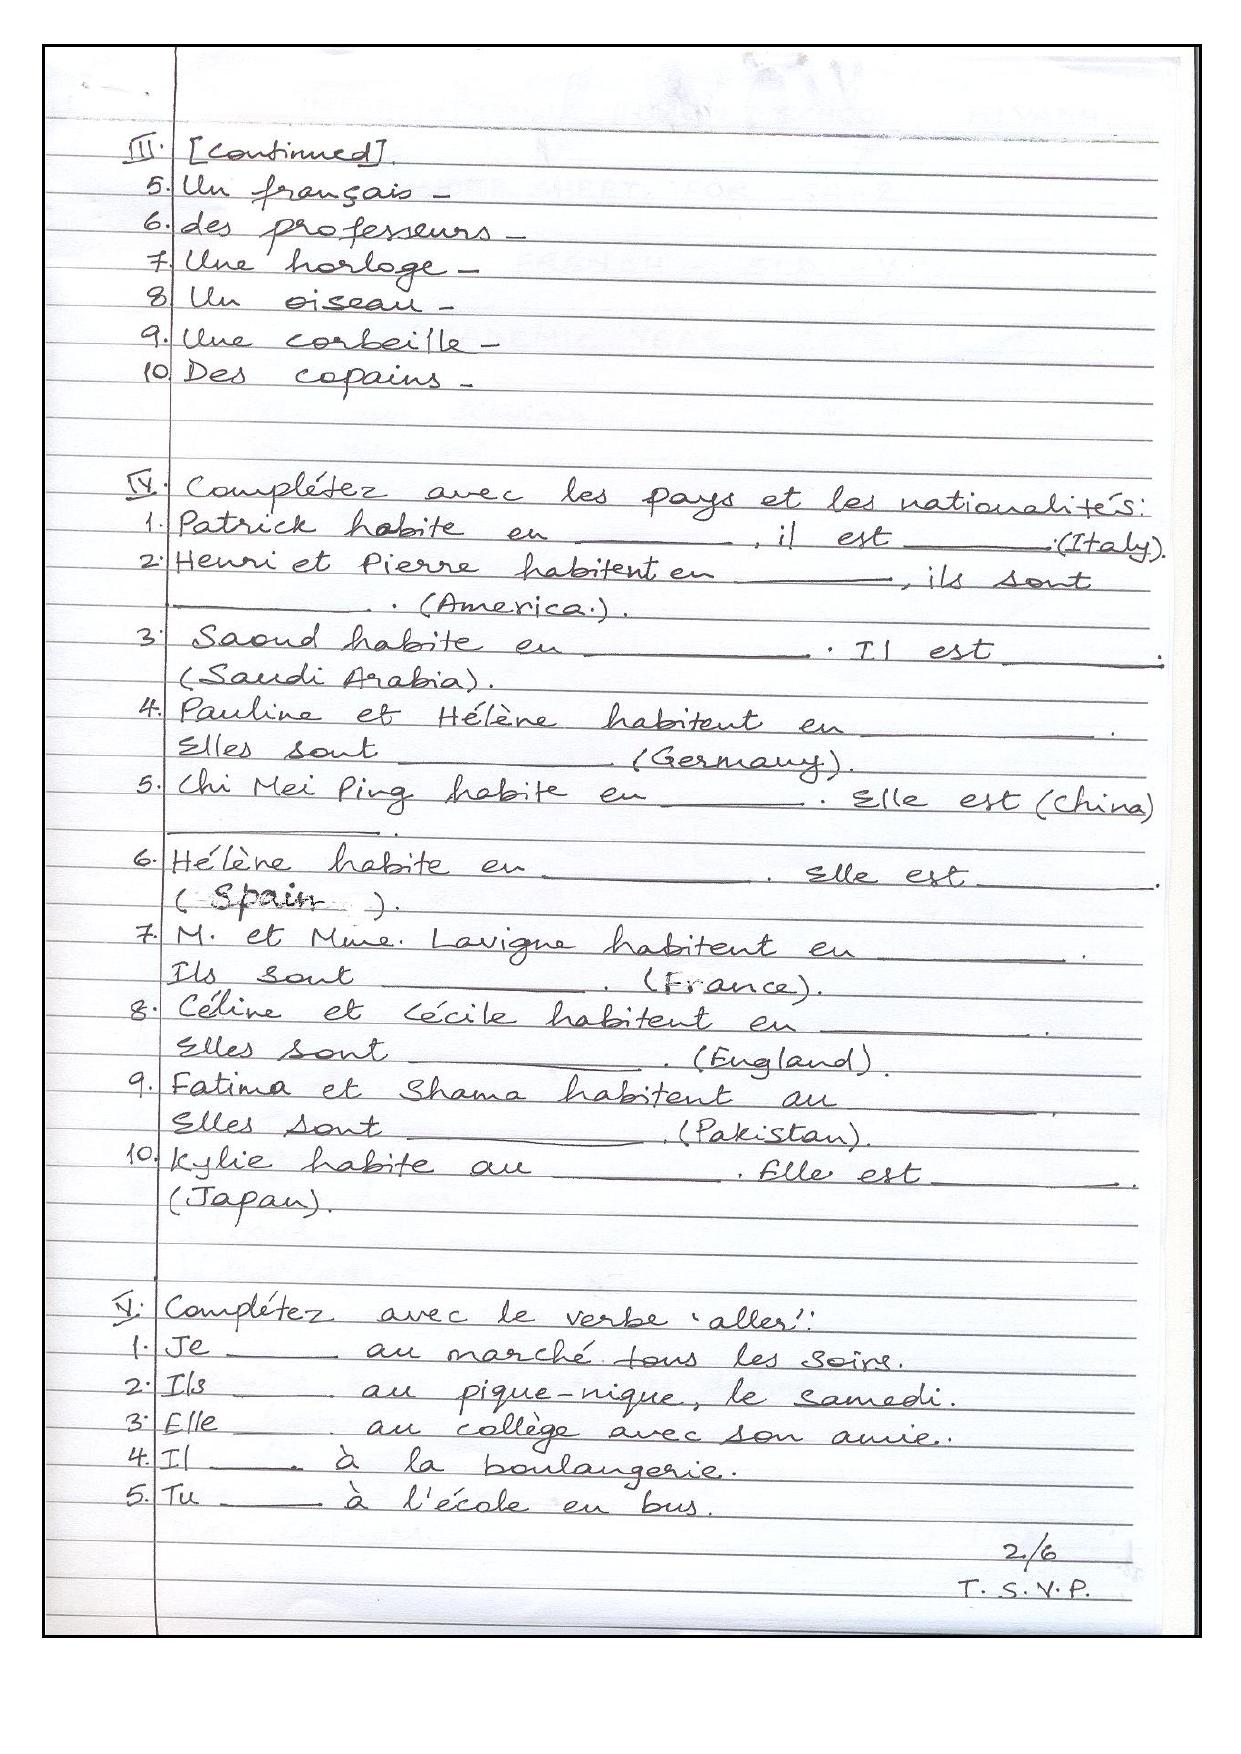 III. [Continued].
5. Un français -
6. des professeurs -
7. Une horloge -
8 Un oiseau -
9. Une corbeille -
10. Des copains -
IV. Complétez avec les pays et les nationalités:
1. Patrick habite en ________, il est ________. (Italy).
2. Henri et Pierre habitent en ________, ils sont
________. (America.).
3. Saoud habite en ________. Il est ________.
(Saudi Arabia).
4. Pauline et Hélène habitent en ________.
Elles sont ________. (Germany).
5. Chi Mei Ping habite en ________. Elle est (China)
________.
6. Hélène habite en ________. Elle est ________.
( Spain ).
7. M. et Mme. Lavigne habitent en ________.
Ils sont ________. (France).
8. Céline et Cécile habitent en ________.
Elles sont ________. (England).
9. Fatima et Shama habitent au ________.
Elles sont ________. (Pakistan).
10. Kylie habite au ________. Elle est ________.
(Japan).
V. Complétez avec le verbe 'aller':
1. Je ______ au marché tous les soirs.
2. Ils ______ au pique-nique, le samedi.
3. Elle ______ au collège avec son amie.
4. Il ______ à la boulangerie.
5. Tu ______ à l'école en bus.
2/6
T. S. V. P.